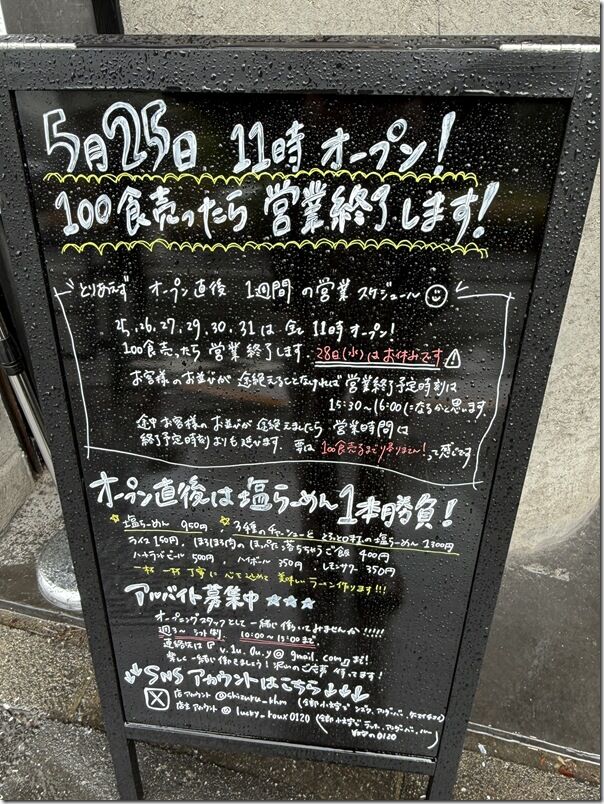 5月25日 11時 オープン!
100食売ったら 営業終了します!
とりあえず オープン直後 1週間の営業スケジュール
25.26.27.29.30.31は全て11時オープン!
100食売ったら営業終了します。28日(水)はお休みです
お客様のお並びが 途絶えることなければ営業終了予定時刻は
15:30~16:00になるかと思います
途中お客様のお並びが途絶えましたら 営業時間は
終了予定時刻よりも延びます。要は100食売るまで帰りません!って感じです
オープン直後は塩らーめん1本勝負!
☆塩らーめん 950円 ☆3種のチャーシューと 味玉の塩らーめん 1300円
ライス150円、ほろほろ肉のほっぺた落ちちゃうご飯 400円
ハートランドビール 500円、ハイボール 350円、レモンサワー 350円
一杯一杯丁寧に 心を込めて 美味しいラーメン作ります!!!
アルバイト募集中☆☆☆
オープニングスタッフとして一緒に働いてみませんか!!!!!
週3~ シフト制 10:00~15:00まで
連絡先は
楽しく一緒に働きましょう! 沢山のご応募 待ってます!
↓↓SNSアカウントはこちら↓↓↓
店アカウント
店主アカウント @lucky_toux0120